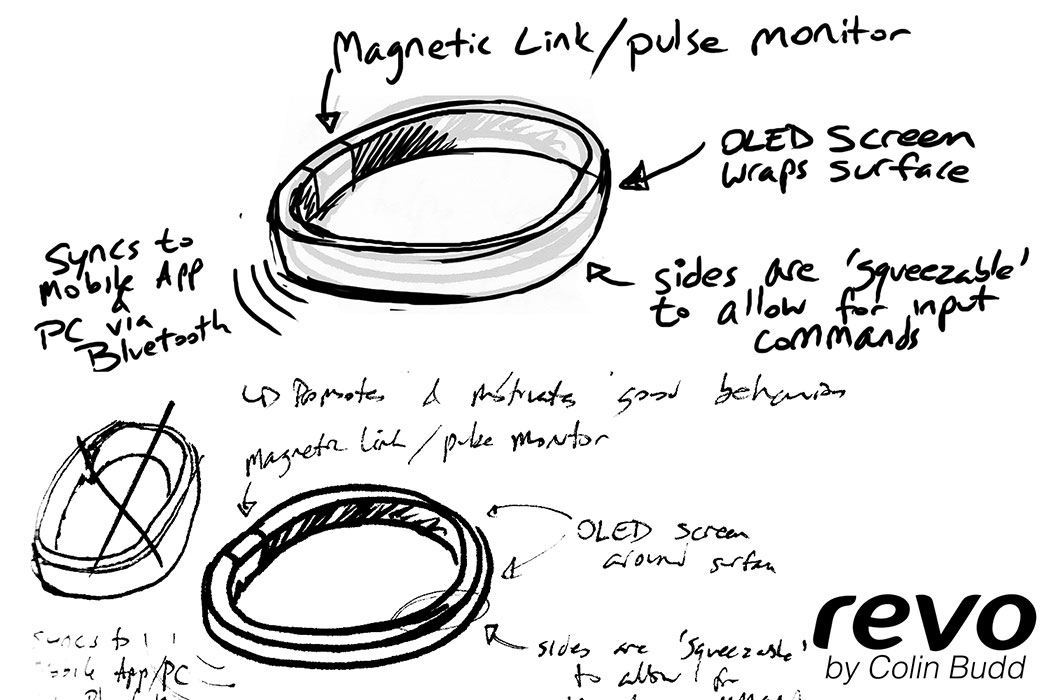 Magnetic Link/pulse monitor
OLED Screen
wraps surface
Syncs to
Mobile App
&
PC via
Bluetooth
sides are 'squeezable'
to allow for input
commands
Promotes & motivates good behavior
magnetic link/pulse monitor
OLED Screen
around surface
syncs to
Mobile App/PC
sides are 'squeezable'
to allow for
revo
by Colin Budd